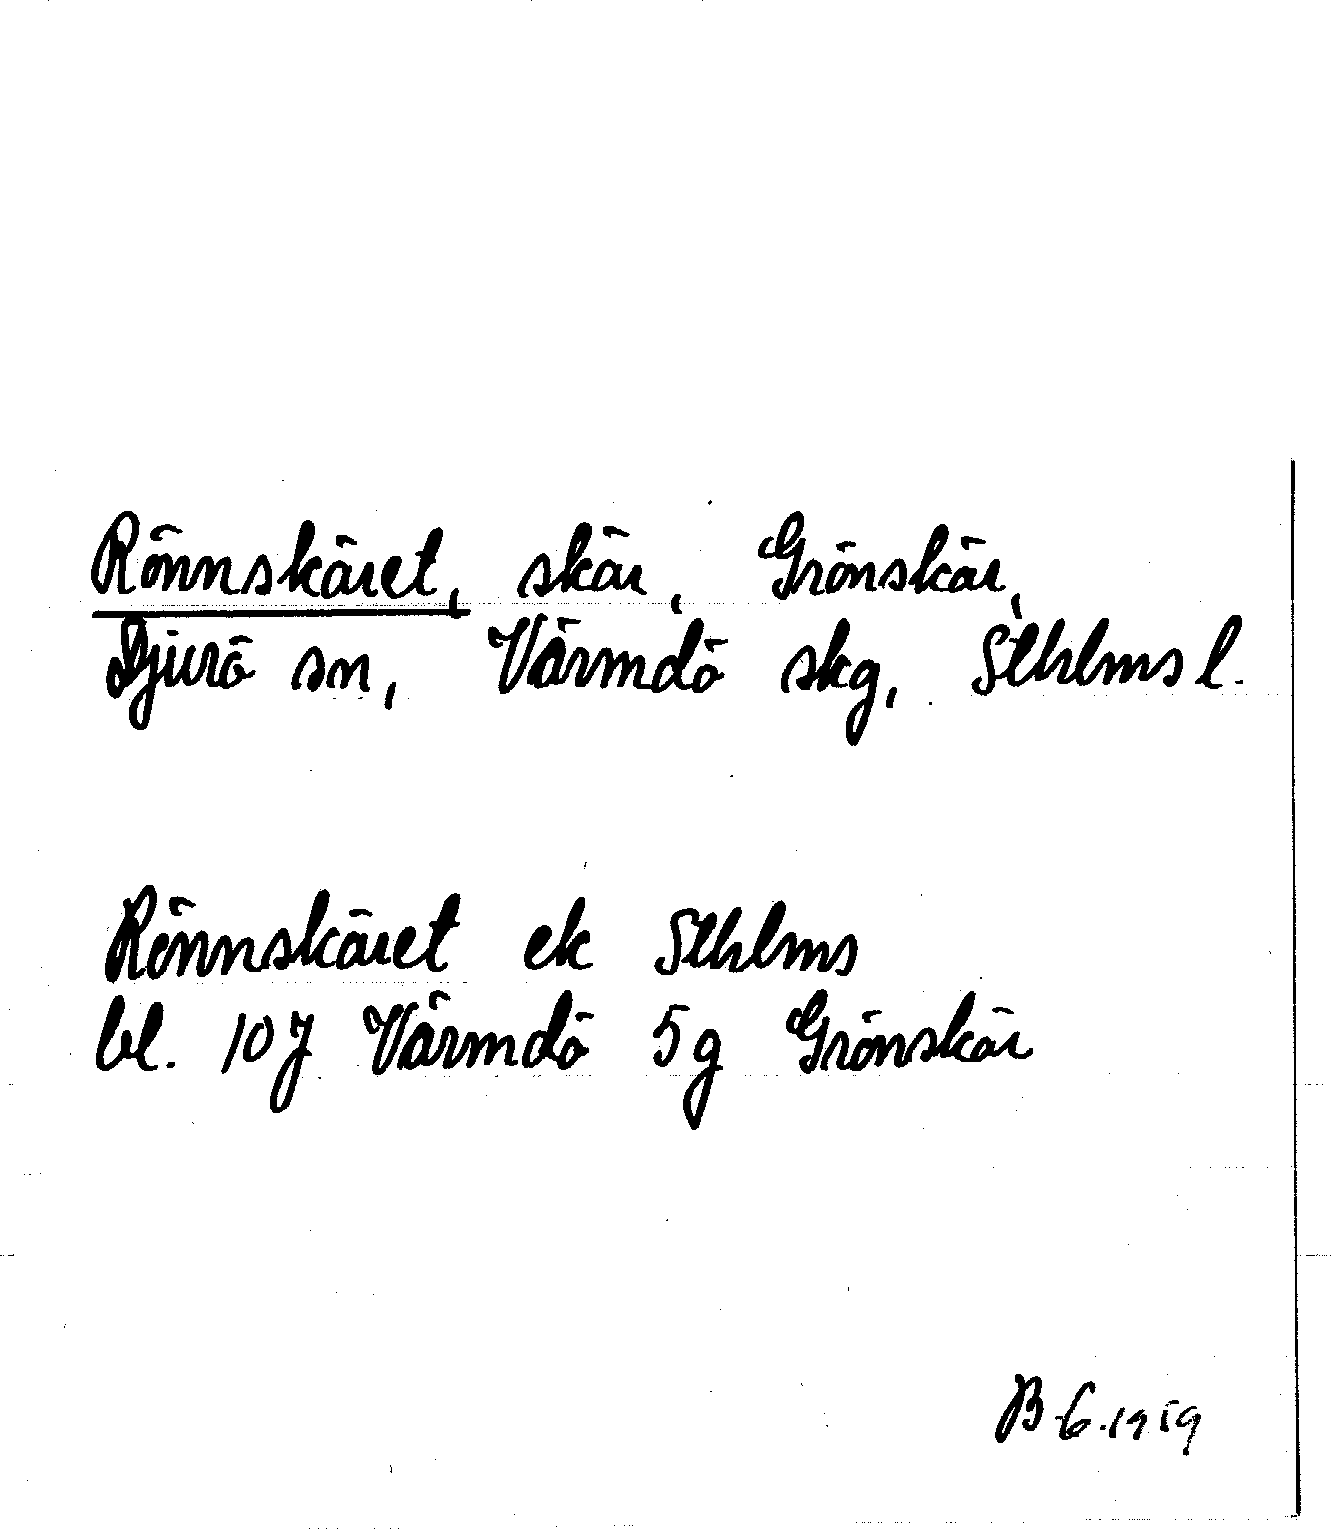 Rönnskäret, skär, Grönskär,
Djurö sn, Värmdö skg, Sthlms l.
Rönnskäret ek Sthlms
bl. 10 J Värmdö 5 g Grönskär
B 6.1959